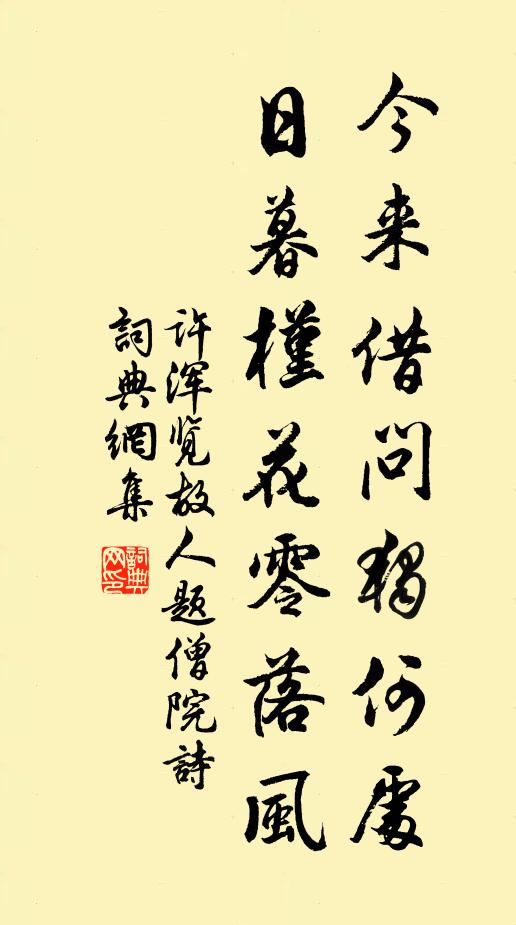 今来借问獨何處
日暮槿花零落風
许浑览故人题僧院詩
詞典網集
詞典网印